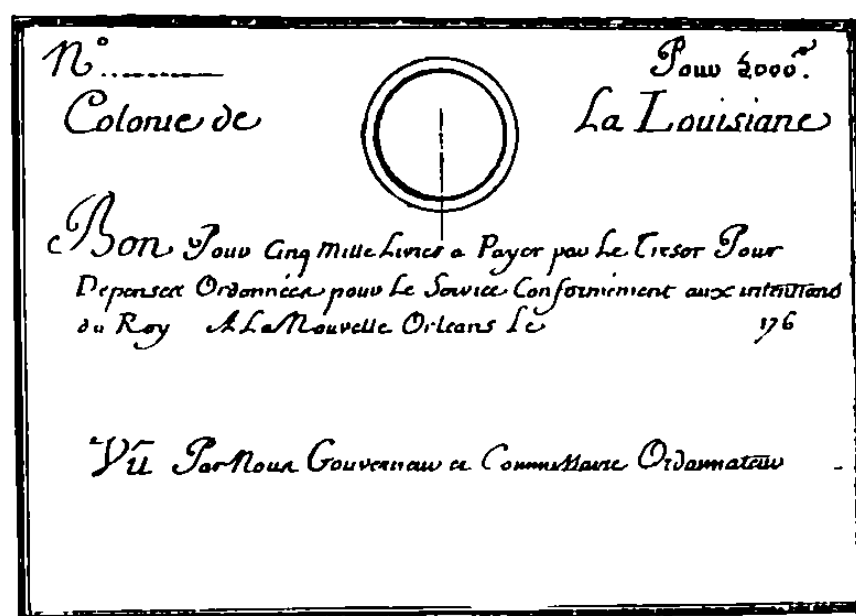 N° Pour 5000ᵗᵗ.
Colonie de La Louisiane
Bon Pour Cinq Mille Livres a Payer par Le Tresor Pour
Depenses Ordonnées pour Le Service Conformement aux intentions
du Roy A La Nouvelle Orleans Le 176
Vû Par Nous Gouverneur et Commissaire Ordonnateur